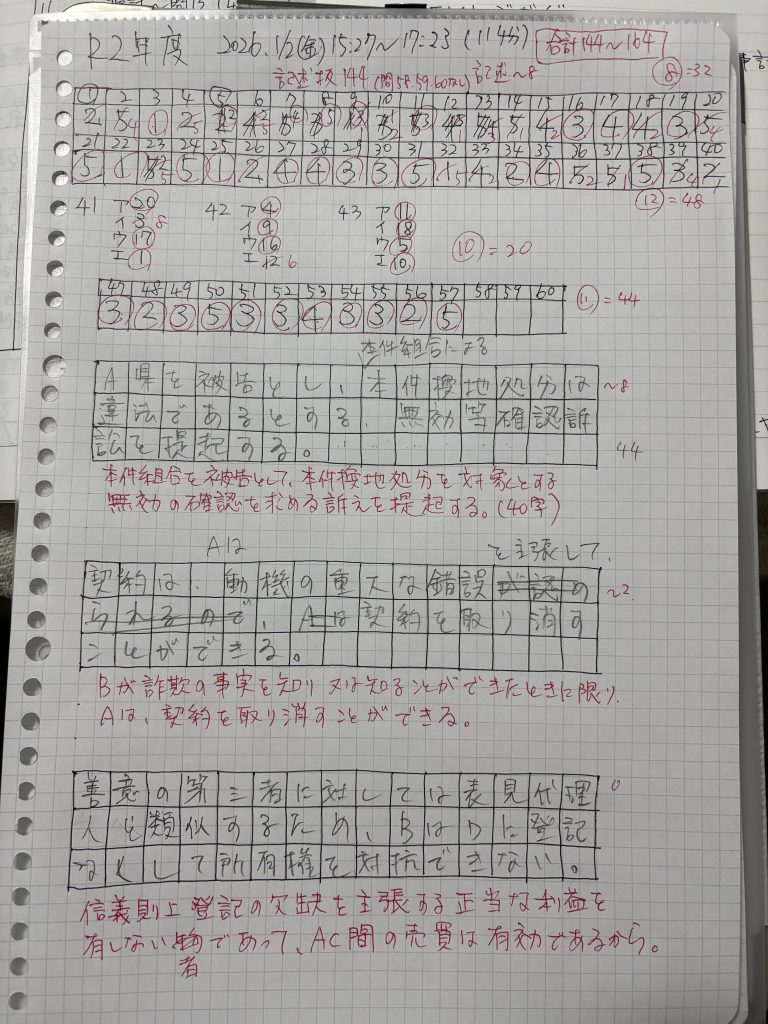 R2年度 2026.1/2(金)15:27〜17:23 (114分) 合計144〜164
記述抜144 (問58.59.60なし) 記述〜8 ⑧=32
1 2 3 4 5 6 7 8 9 10 11 12 13 14 15 16 17 18 19 20
21 22 23 24 25 26 27 28 29 30 31 32 33 34 35 36 37 38 39 40
5 1 5 1 2 4 4 3 3 5
⑫=48
41 ア20 42 ア4 43 ア11
イ3 8 イ9 イ18
ウ17 ウ16 ウ5 ⑩=20
エ1 エ12 6 エ10
47 48 49 50 51 52 53 54 55 56 57 58 59 60
3 2 3 5 3 3 4 3 3 2 5 ⑪=44
本件組合による
A県を被告とし、本件換地処分は 〜8
違法であるとする、無効等確認訴
訟を提起する。 44
本件組合を被告として、本件換地処分を対象とする
無効の確認を求める訴えを提起する。(40字)
Aは を主張して、
契約は、動機の重大な錯誤が認め 〜2
られるので、Aは契約を取り消す
ことができる。
Bが詐欺の事実を知り又は知ることができたときに限り、
Aは、契約を取り消すことができる。
善意の第三者に対しては表見代理 0
人を類似するため、BはDに登記
なくして所有権を対抗できない。
信義則上登記の欠缺を主張する正当な利益を
有しない者であって、AC間の売買は有効であるから。